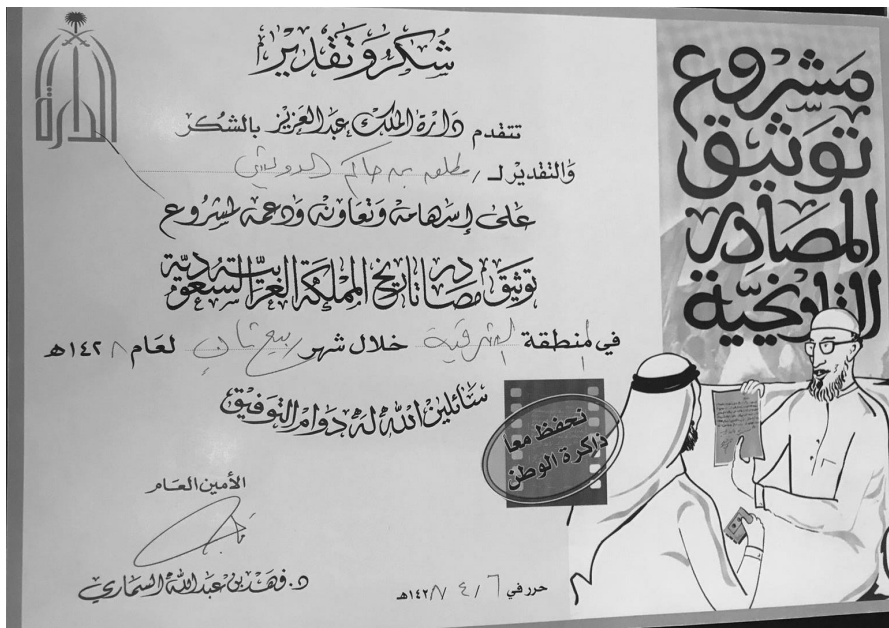 شكر وتقدير
تتقدم دارة الملك عبدالعزيز بالشكر
والتقدير لـ / مطلق بن حاكم الدويش
على إسهامه وتعاونه ودعمه لمشروع
توثيق مصادر تاريخ المملكة العربية السعودية
في المنطقة الشرقية خلال شهر ربيع ثاني لعام ١٤٢٨هـ
سائلين الله له دوام التوفيق
الأمين العام
د. فهد بن عبدالله السماري
حرر في ٦ / ٤ / ١٤٢٨هـ
الدارة
مشروع
توثيق
المصادر
التاريخية
نحفظ معا
ذاكرة الوطن